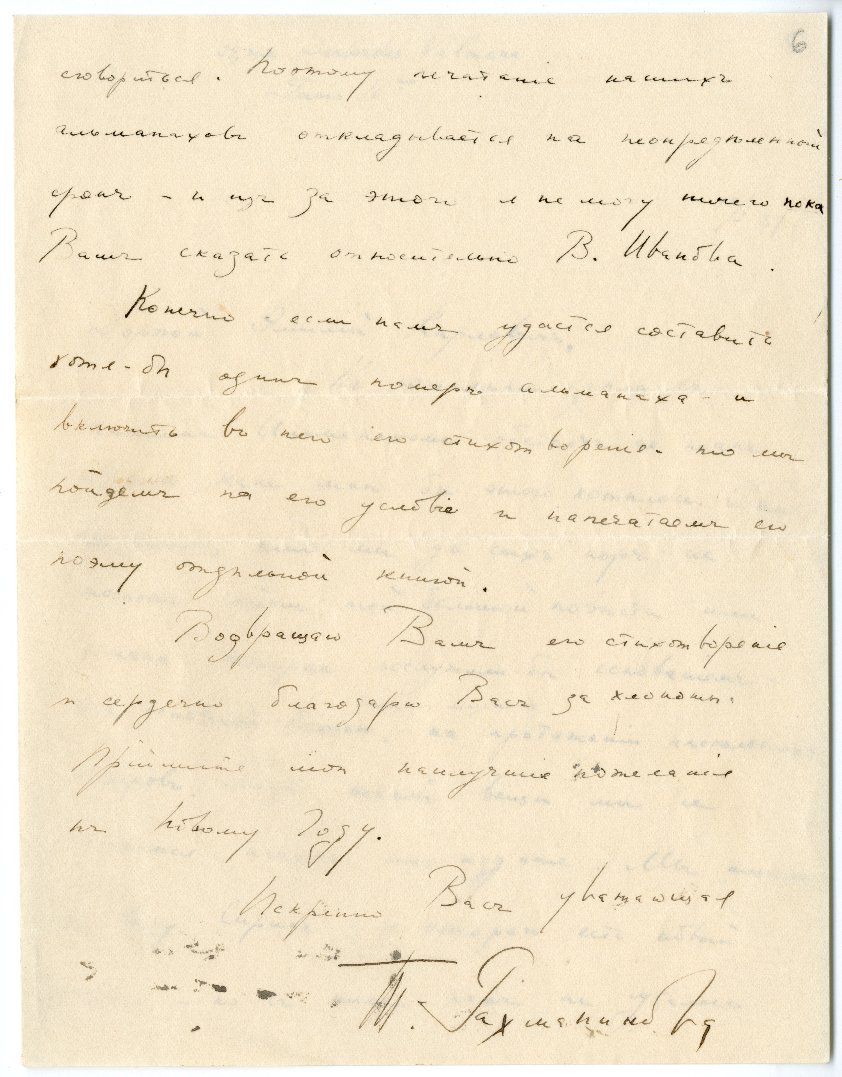 6
сговориться. Поэтому печатанiе нашихъ
альманаховъ откладывается на неопредѣленный
срокъ – и изъ за этого я не могу ничего пока
Вамъ сказать относительно В. Иванова.
Конечно если намъ удастся составить
хотя-бы одинъ номеръ альманаха – и
включить въ него его стихотворенiе – то мы
пойдемъ на его условiе и напечатаемъ его
поэму отдѣльной книгой.
Возвращаю Вамъ его стихотворенiе
и сердечно благодарю Васъ за хлопоты.
Прiймите мои наилучшiе пожеланiя
къ Новому Году.
Искренно Васъ уважающая
Т. Рахманинова